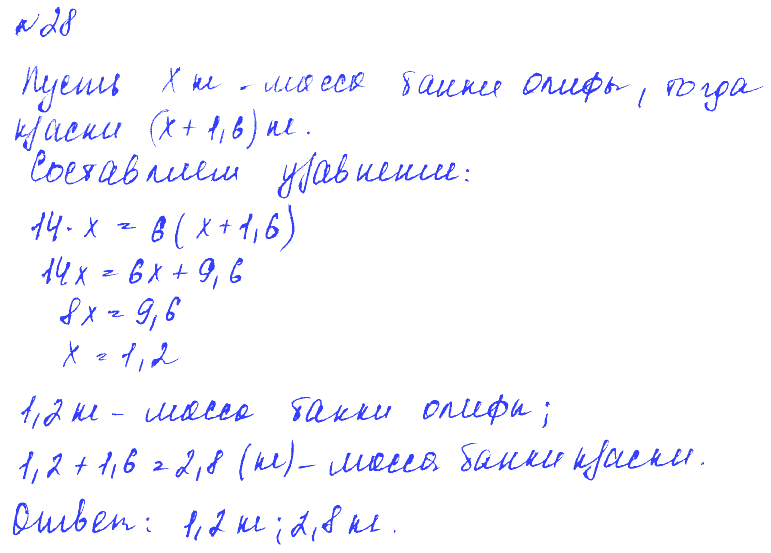 №28
Пусть x кг - масса банки олифы, тогда
краски (x+1,6) кг.
Составляем уравнение:
14· x = 6(x+1,6)
14x = 6x + 9,6
8x = 9,6
x = 1,2
1,2 кг - масса банки олифы;
1,2+1,6=2,8 (кг) - масса банки краски.
Ответ: 1,2 кг; 2,8 кг.